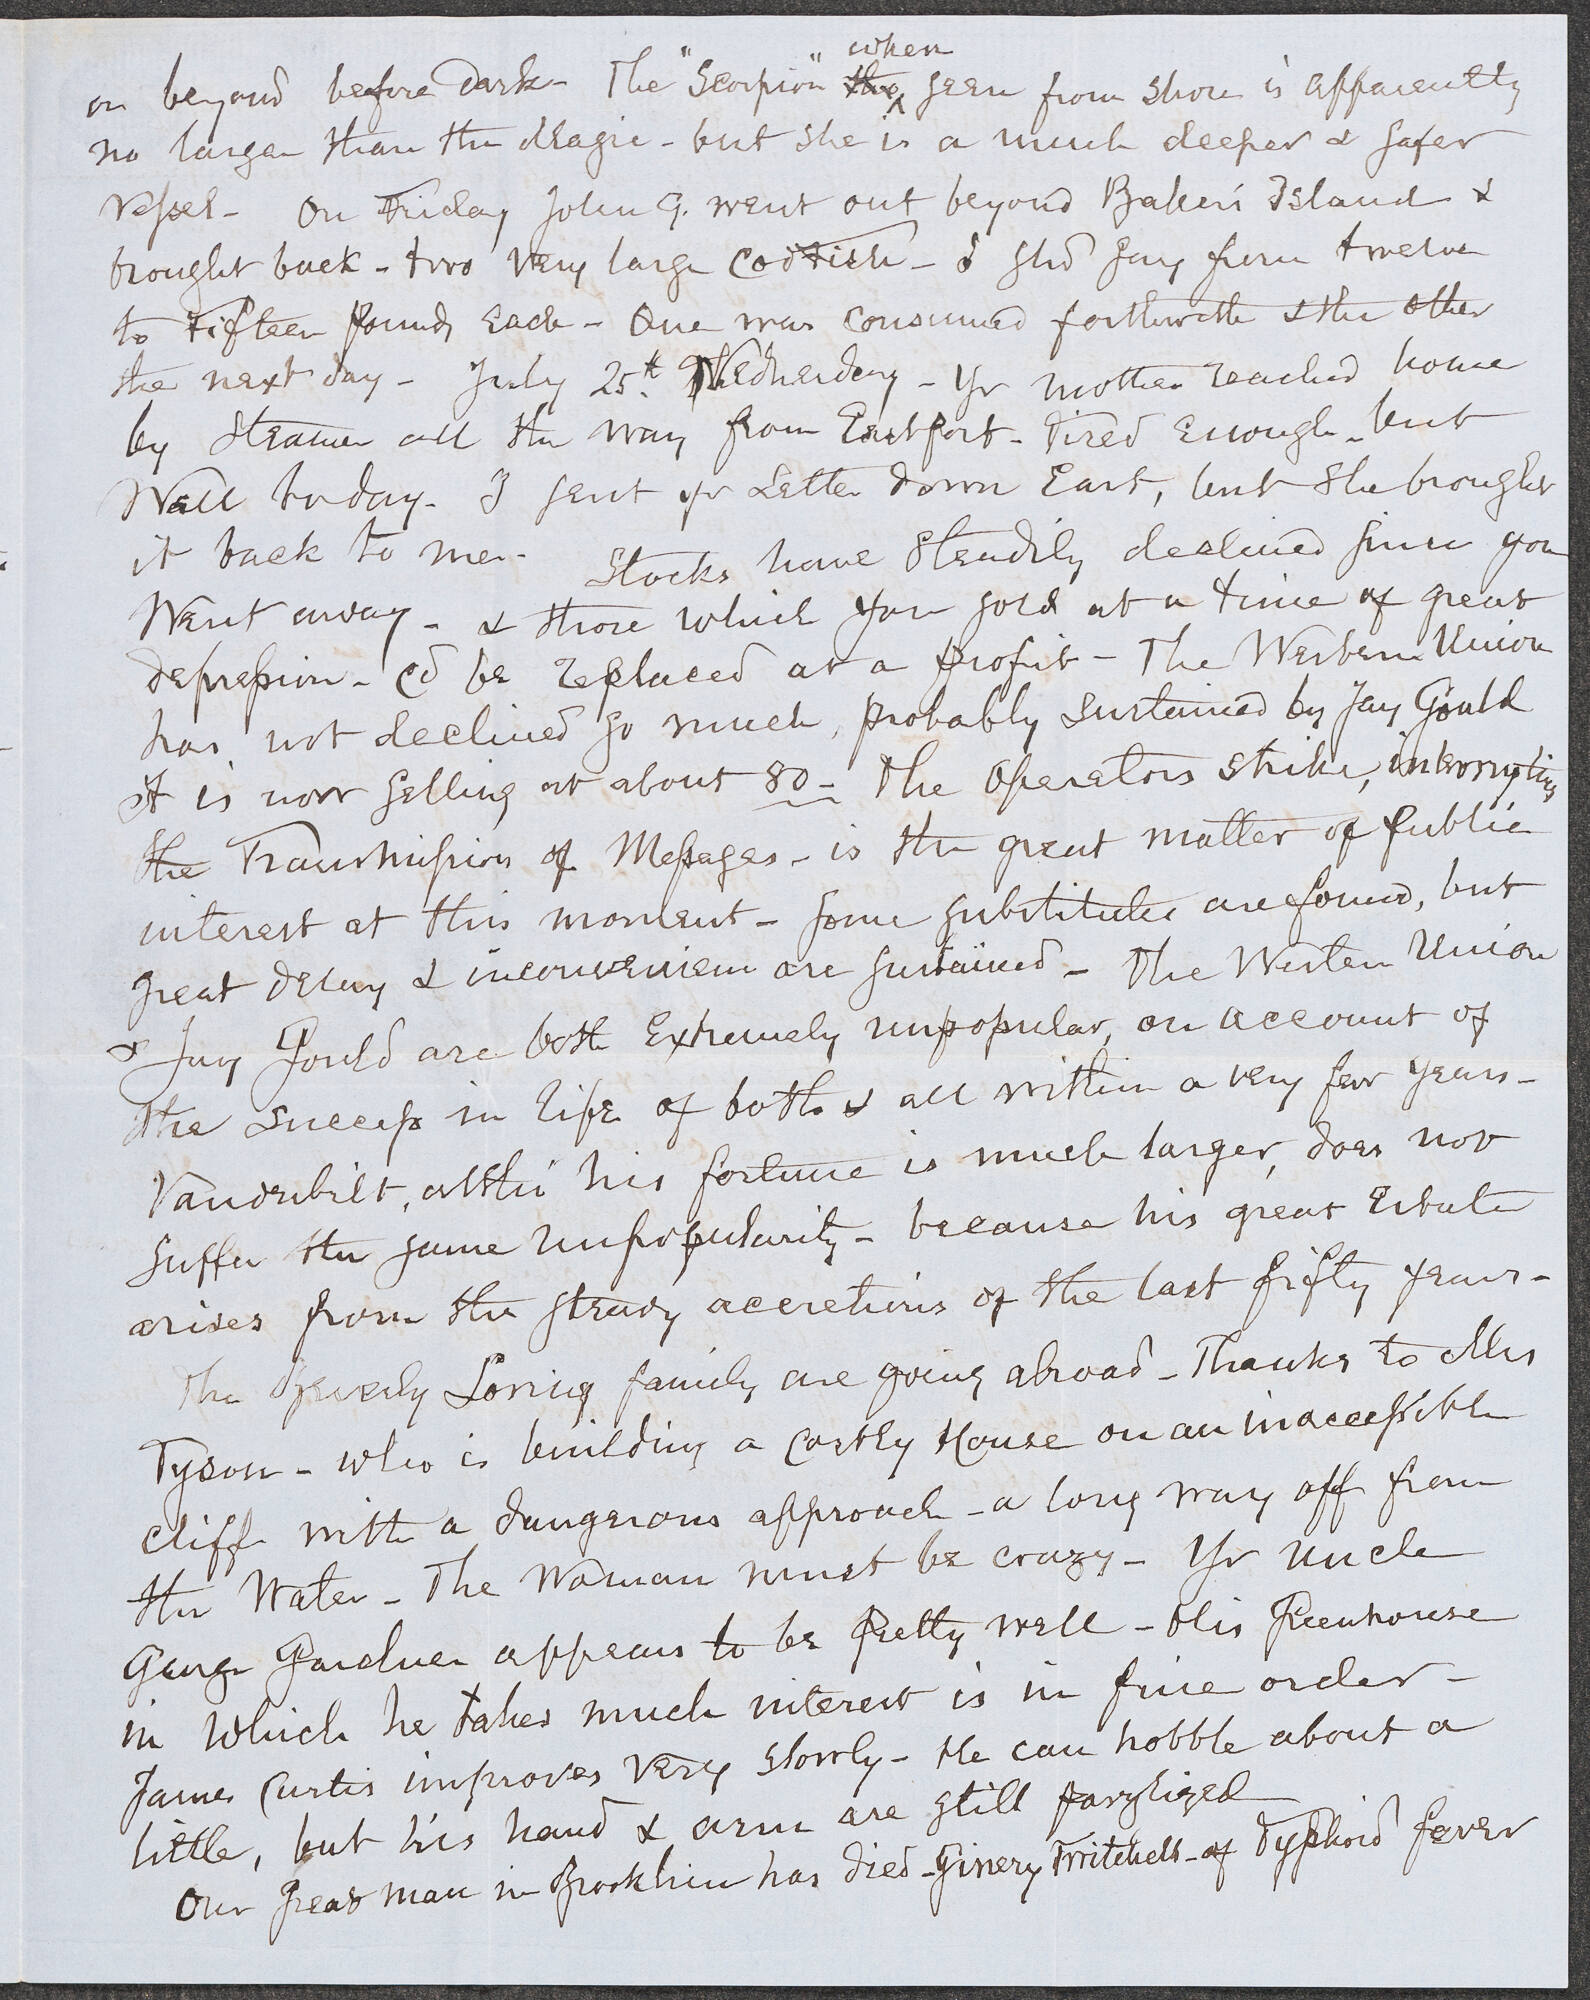 or beyond before Dark - The "Scorpion" the when seen from shore is apparently
no larger than the Magic - but she is a much deeper & safer
vessel - On Friday John G. went out beyond Baker's Island &
brought back - two very large Codfish - I shd say from twelve
to Fifteen pounds each - One was consumed forthwith & the other
the next day - July 25th. Wednesday - Yr mother reached home
by Steamer all the way from Eastport - Tired Enough - but
Well to day. I sent yr Letter down East, but she brought
it back to me - Stocks have steadily declined since you
Went away - & those which you sold at a time of great
depression - cd be replaced at a profit - The Western Union
has not declined so much, probably sustained by Jay Gould
It is now selling at about 80 - The Operators strike, interrupting
the Transmission of Messages - is the great matter of public
interest at this moment - Some substitutes are found, but
great delay & inconvenience are sustained - The Western Union
& Jay Gould are both Extremely unpopular, on account of
the success in life of both & all within a very few years -
Vanderbilt, altho' his fortune is much larger, does not
suffer the same unpopularity - because his great Estate
arises from the steady accretions of the last fifty years -
The Beverly Loring family are going abroad - Thanks to Mrs
Tyson - who is building a costly House on an inaccessible
cliff with a dangerous approach - a long way off from
the Water - The Woman must be crazy - Yr Uncle
George Gardner appears to be pretty well - His Greenhouse
in which he takes much interest is in fine order -
James Curtis improves very slowly - He can hobble about a
little, but his hand & arm are still paralyzed
Our great man in Brookline has died - Ginery Twitchell - of Typhoid fever